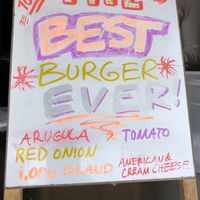 THE
BEST
BURGER
EVER!
ARUGULA & TOMATO
RED ONION
1,000 ISLAND
AMERICAN &
CREAM CHEESE